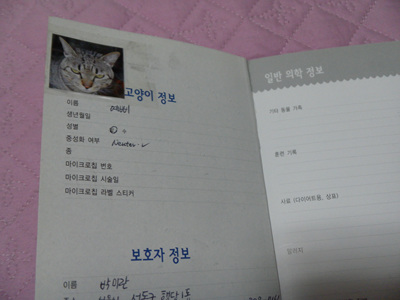 고양이 정보
이름
생년월일
성별
중성화 여부 Neuter ✓
종
마이크로칩 번호
마이크로칩 시술일
마이크로칩 라벨 스티커
보호자 정보
이름 박미란
성동구
일반 의학 정보
기타 동물 기록
훈련 기록
사료 (다이어트용, 상표)